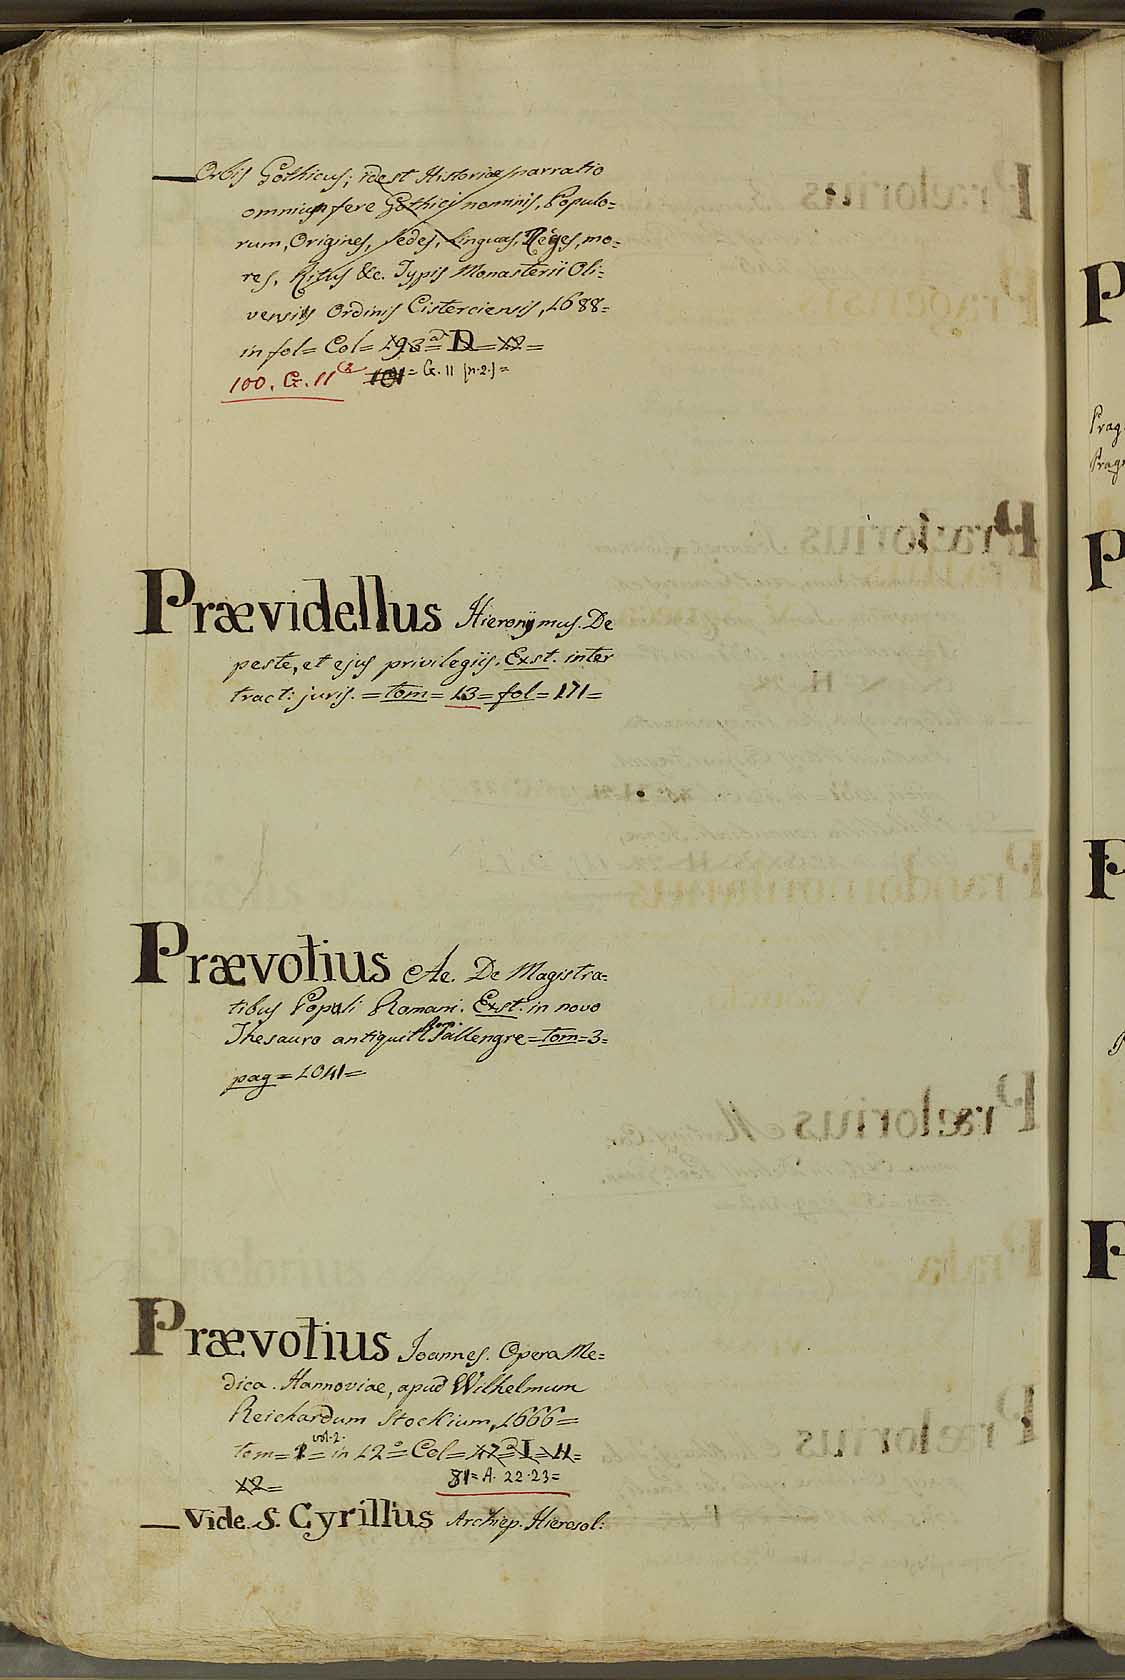 — Orbis Gothicus; id est Historica narratio
omnium fere Gothici nominis, Populo=
rum, Origines, Sedes, Linguas, Reges, mo=
res, Ritus &c. Typis Monasterii Oli=
vensis Ordinis Cisterciensis, 1688=
in fol= Col= 198= D= 12=
100. G. 11 101= G. 11 [n. 2.]=
Prævidellus Hieronÿmus. De
peste, et ejus privilegiis. Exst. inter
tract: juris. = tom= 13= fol= 171=
Prævotius Ae. De Magistra=
tibus Populi Romani. Exst: in novo
Thesauro antiquit: Rom: Sallengre= tom= 3=
pag= 1041=
Prævotius Joannes. Opera Me=
dica. Hannoviae, apud Wilhelmum
Reichardum Stockium, 1666=
vol. 2.
tom= 1= in 12°= Col= 47= I= 11=
12= 81= A. 22. 23=
— Vide. S. Cyrillius Archiep. Hierosol:
P
Prag
Prag
P
P
P